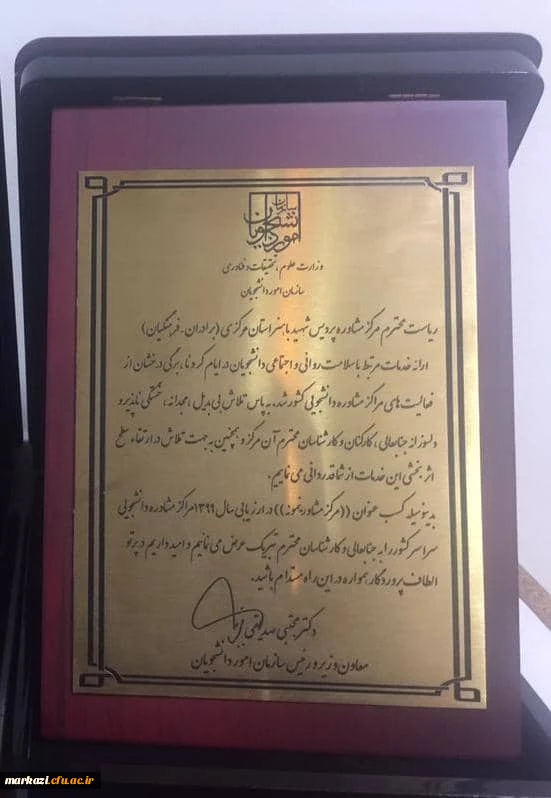 سازمان
امور دانشجویان
وزارت علوم، تحقیقات و فناوری
سازمان امور دانشجویان
ریاست محترم مرکز مشاوره پردیس شهید باهنر استان مرکزی (برادران-فرهنگیان)
ارائه خدمات مرتبط با سلامت روانی و اجتماعی دانشجویان در ایام کرونا، برگی درخشان از
فعالیت های مراکز مشاوره دانشجویی کشور شد. به پاس تلاش بی بدیل، مجدانه، خستگی ناپذیر و
دلسوزانه جنابعالی، کارکنان و کارشناسان محترم آن مرکز و همچنین به جهت تلاش در ارتقاء سطح
اثربخشی این خدمات از شما قدردانی می نماییم.
بدینوسیله کسب عنوان ((مرکز مشاوره نمونه)) در ارزیابی سال ۱۳۹۹ مراکز مشاوره دانشجویی
سراسر کشور را به جنابعالی و کارشناسان محترم تبریک عرض می نمائیم و امید داریم در پرتو
الطاف پروردگار همواره در این راه مستدام باشید.
دکتر مجتبی صدیقی
معاون وزیر و رئیس سازمان امور دانشجویان
markazi.cfu.ac.ir